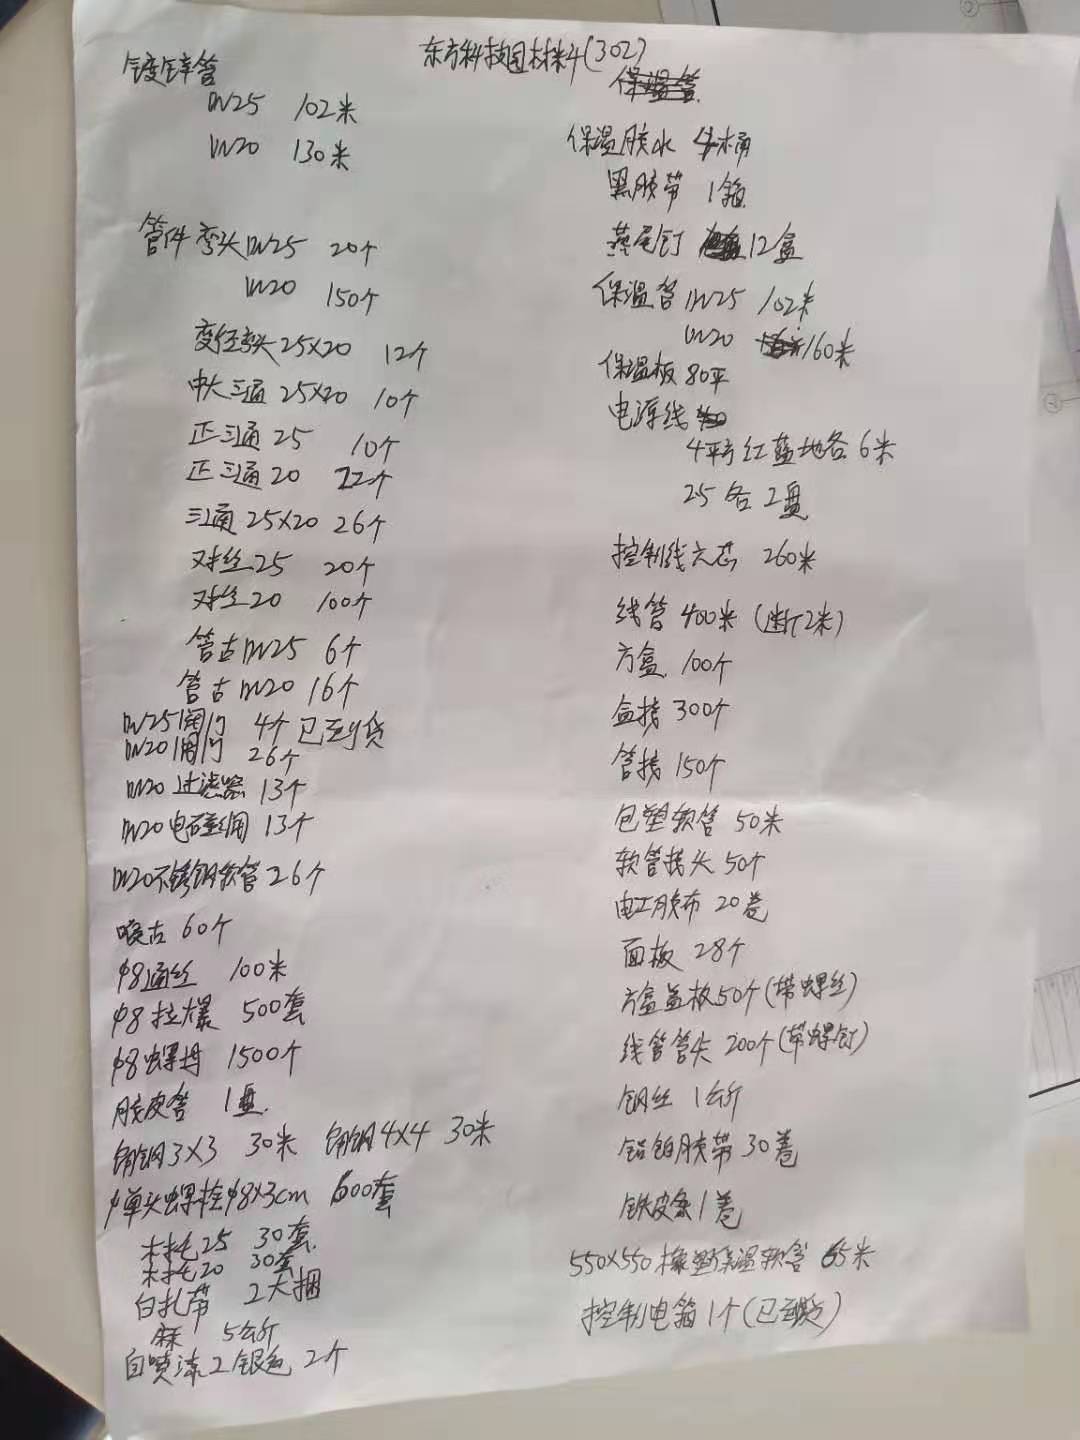 东方科技园材料(302)
镀锌管
DN25 102米
DN20 130米
管件 弯头DN25 20个
DN20 150个
变径弯头25X20 12个
中大三通25X20 10个
正三通25 10个
正三通20 22个
三通25X20 26个
对丝25 20个
对丝20 100个
管古DN25 6个
管古DN20 16个
DN25阀门 4个 已到货
DN20阀门 26个
DN20过滤器 13个
DN20电磁阀 13个
DN20不锈钢软管26个
喉古 60个
φ8通丝 100米
φ8拉爆 500套
φ8螺母 1500个
胶皮管 1盘
角钢3X3 30米 角钢4X4 30米
单头螺栓φ8X3cm 600套
木托25 30套
木托20 30套
白扎带 2大捆
麻 5公斤
自喷漆 银色 2个
保温管
保温胶水 4桶
黑胶带 1箱
燕尾钉 12盒
保温管DN25 102米
DN20 160米
保温板80平
电源线
4平方红蓝地各6米
25各2盘
控制线六芯 260米
线管400米(2米)
方盒 100个
盒接300个
管接150个
包塑软管 50米
软管接头50个
电工胶布 20卷
面板 28个
方盒盖板50个(带螺丝)
线管管卡 200个(带螺钉)
钢丝 1公斤
铝铂胶带30卷
铁皮条1卷
550X550橡塑保温软管 65米
控制电箱1个(已到货)